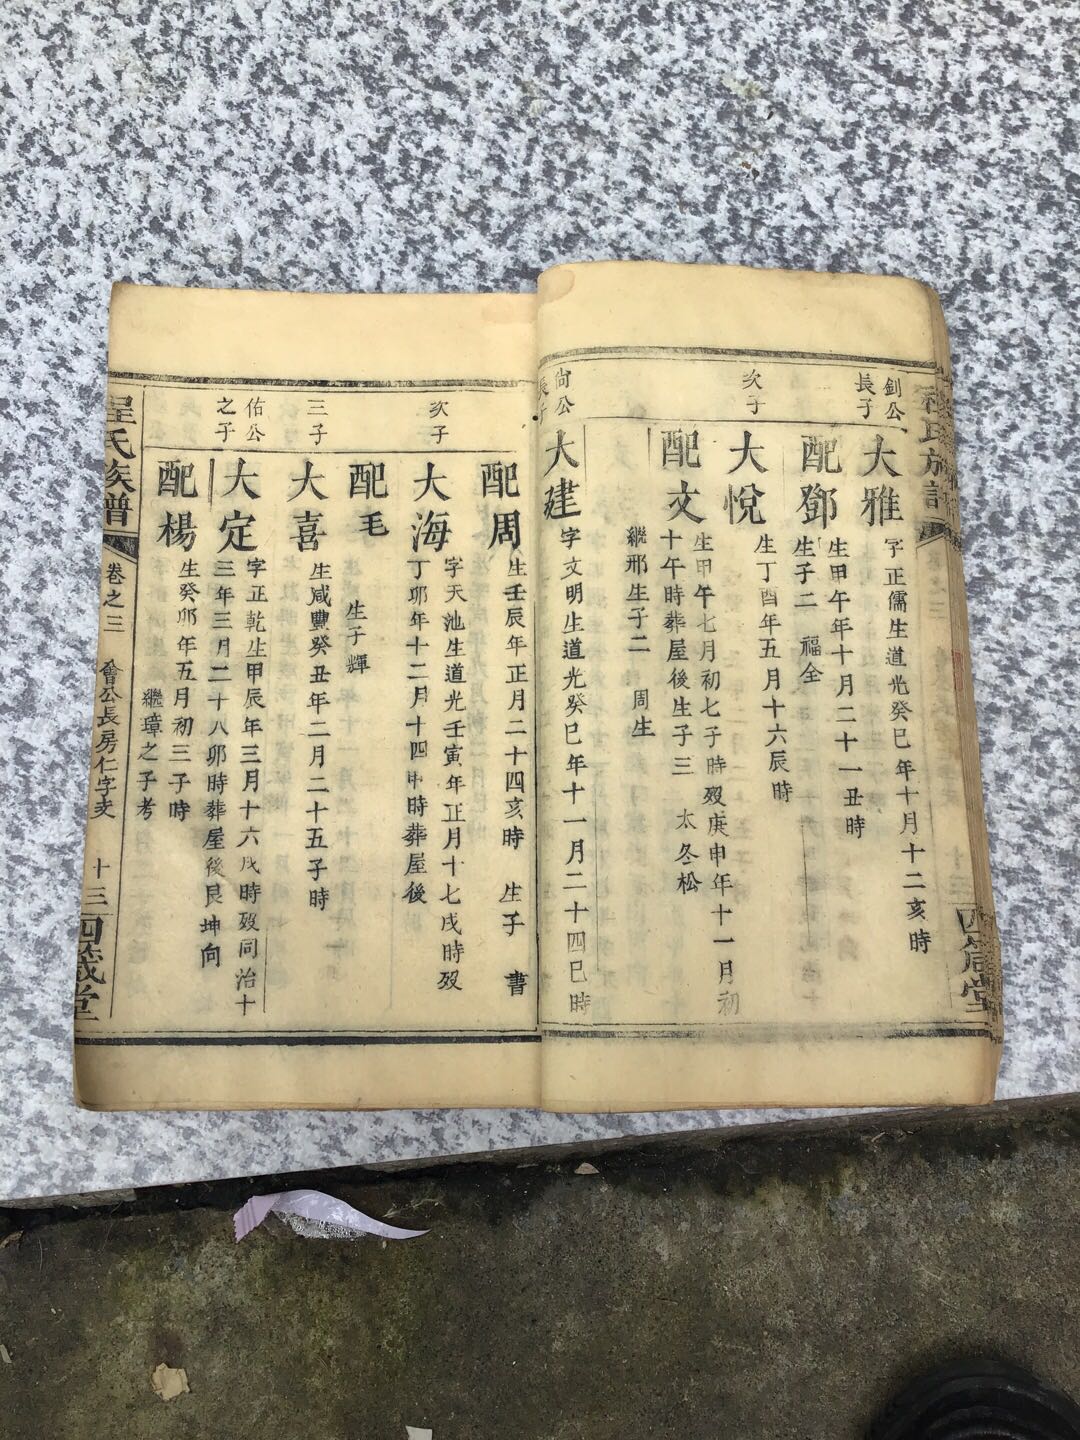 釗公
長子
大雅
字正儒生道光癸巳年十月十二亥時
配鄧
生甲午年十月二十一丑時
生子二 福全
次子
大悅
生丁酉年五月十六辰時
配文
生甲午七月初七子時歿庚申年十一月初
十午時葬屋後生子三 太冬松
繼邢生子二 周生
尙公
長子
大建
字文明生道光癸巳年十一月二十四巳時
配周
生壬辰年正月二十四亥時 生子 書
次子
大海
字天池生道光壬寅年正月十七戌時歿
丁卯年十二月十四申時葬屋後
配毛
生子輝
三子
大喜
生咸豐癸丑年二月二十五子時
佑公
之子
大定
字正乾生甲辰年三月十六戌時歿同治十
三年三月二十八卯時葬屋後艮坤向
配楊
生癸卯年五月初三子時
繼璋之子考
程氏族譜
卷之三
會公長房仁字支
十三
四箴堂